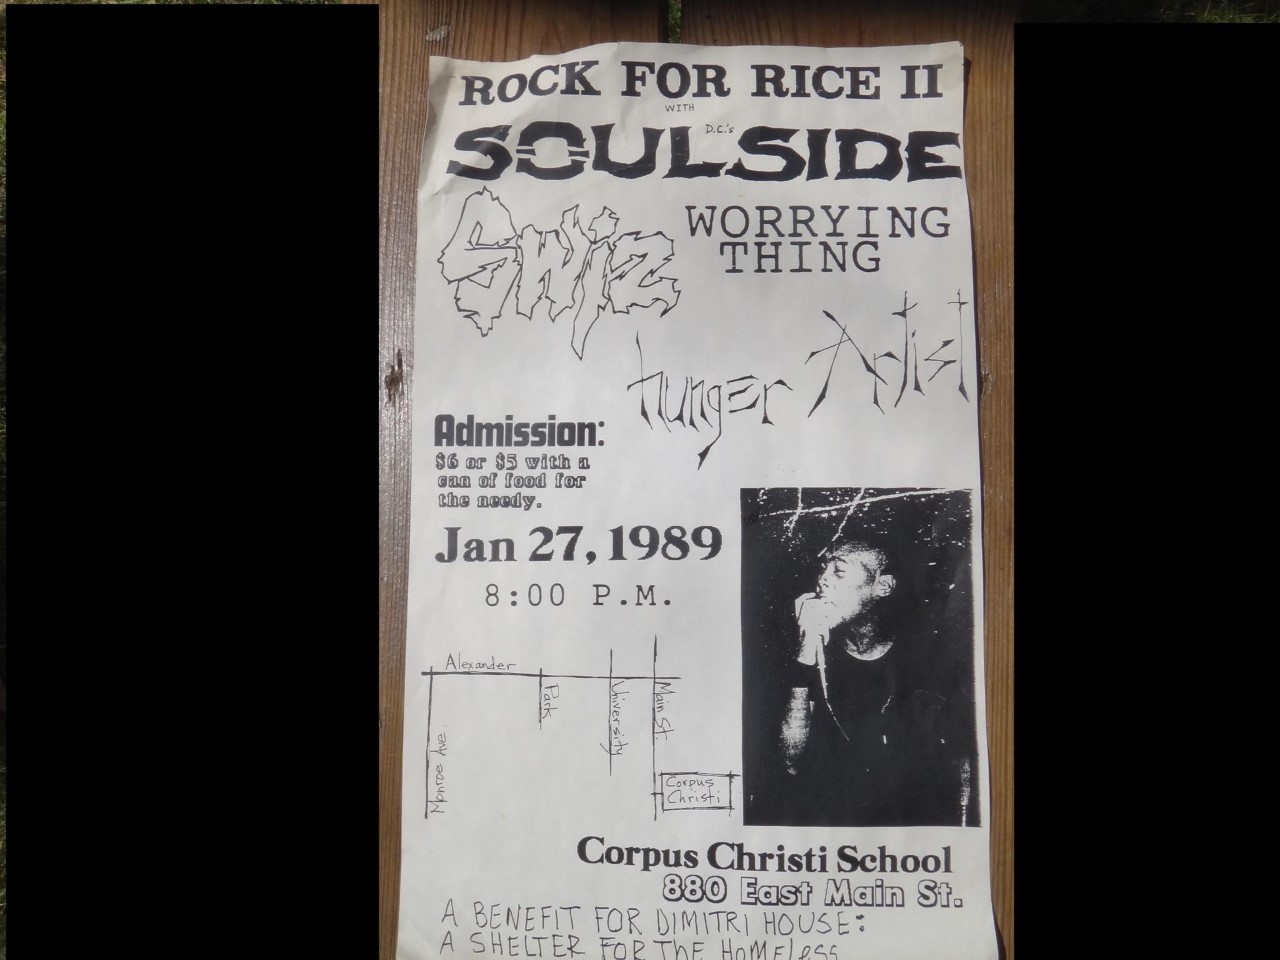 ROCK FOR RICE II
WITH
D.C.'s
SOULSIDE
Swiz
WORRYING
THING
hunger Artist
Admission:
$6 or $5 with a
can of food for
the needy.
Jan 27, 1989
8:00 P.M.
Alexander
Park
University
Main St.
Monroe Ave.
Corpus
Christi
Corpus Christi School
880 East Main St.
A BENEFIT FOR DIMITRI HOUSE:
A SHELTER FOR THE HOMELESS